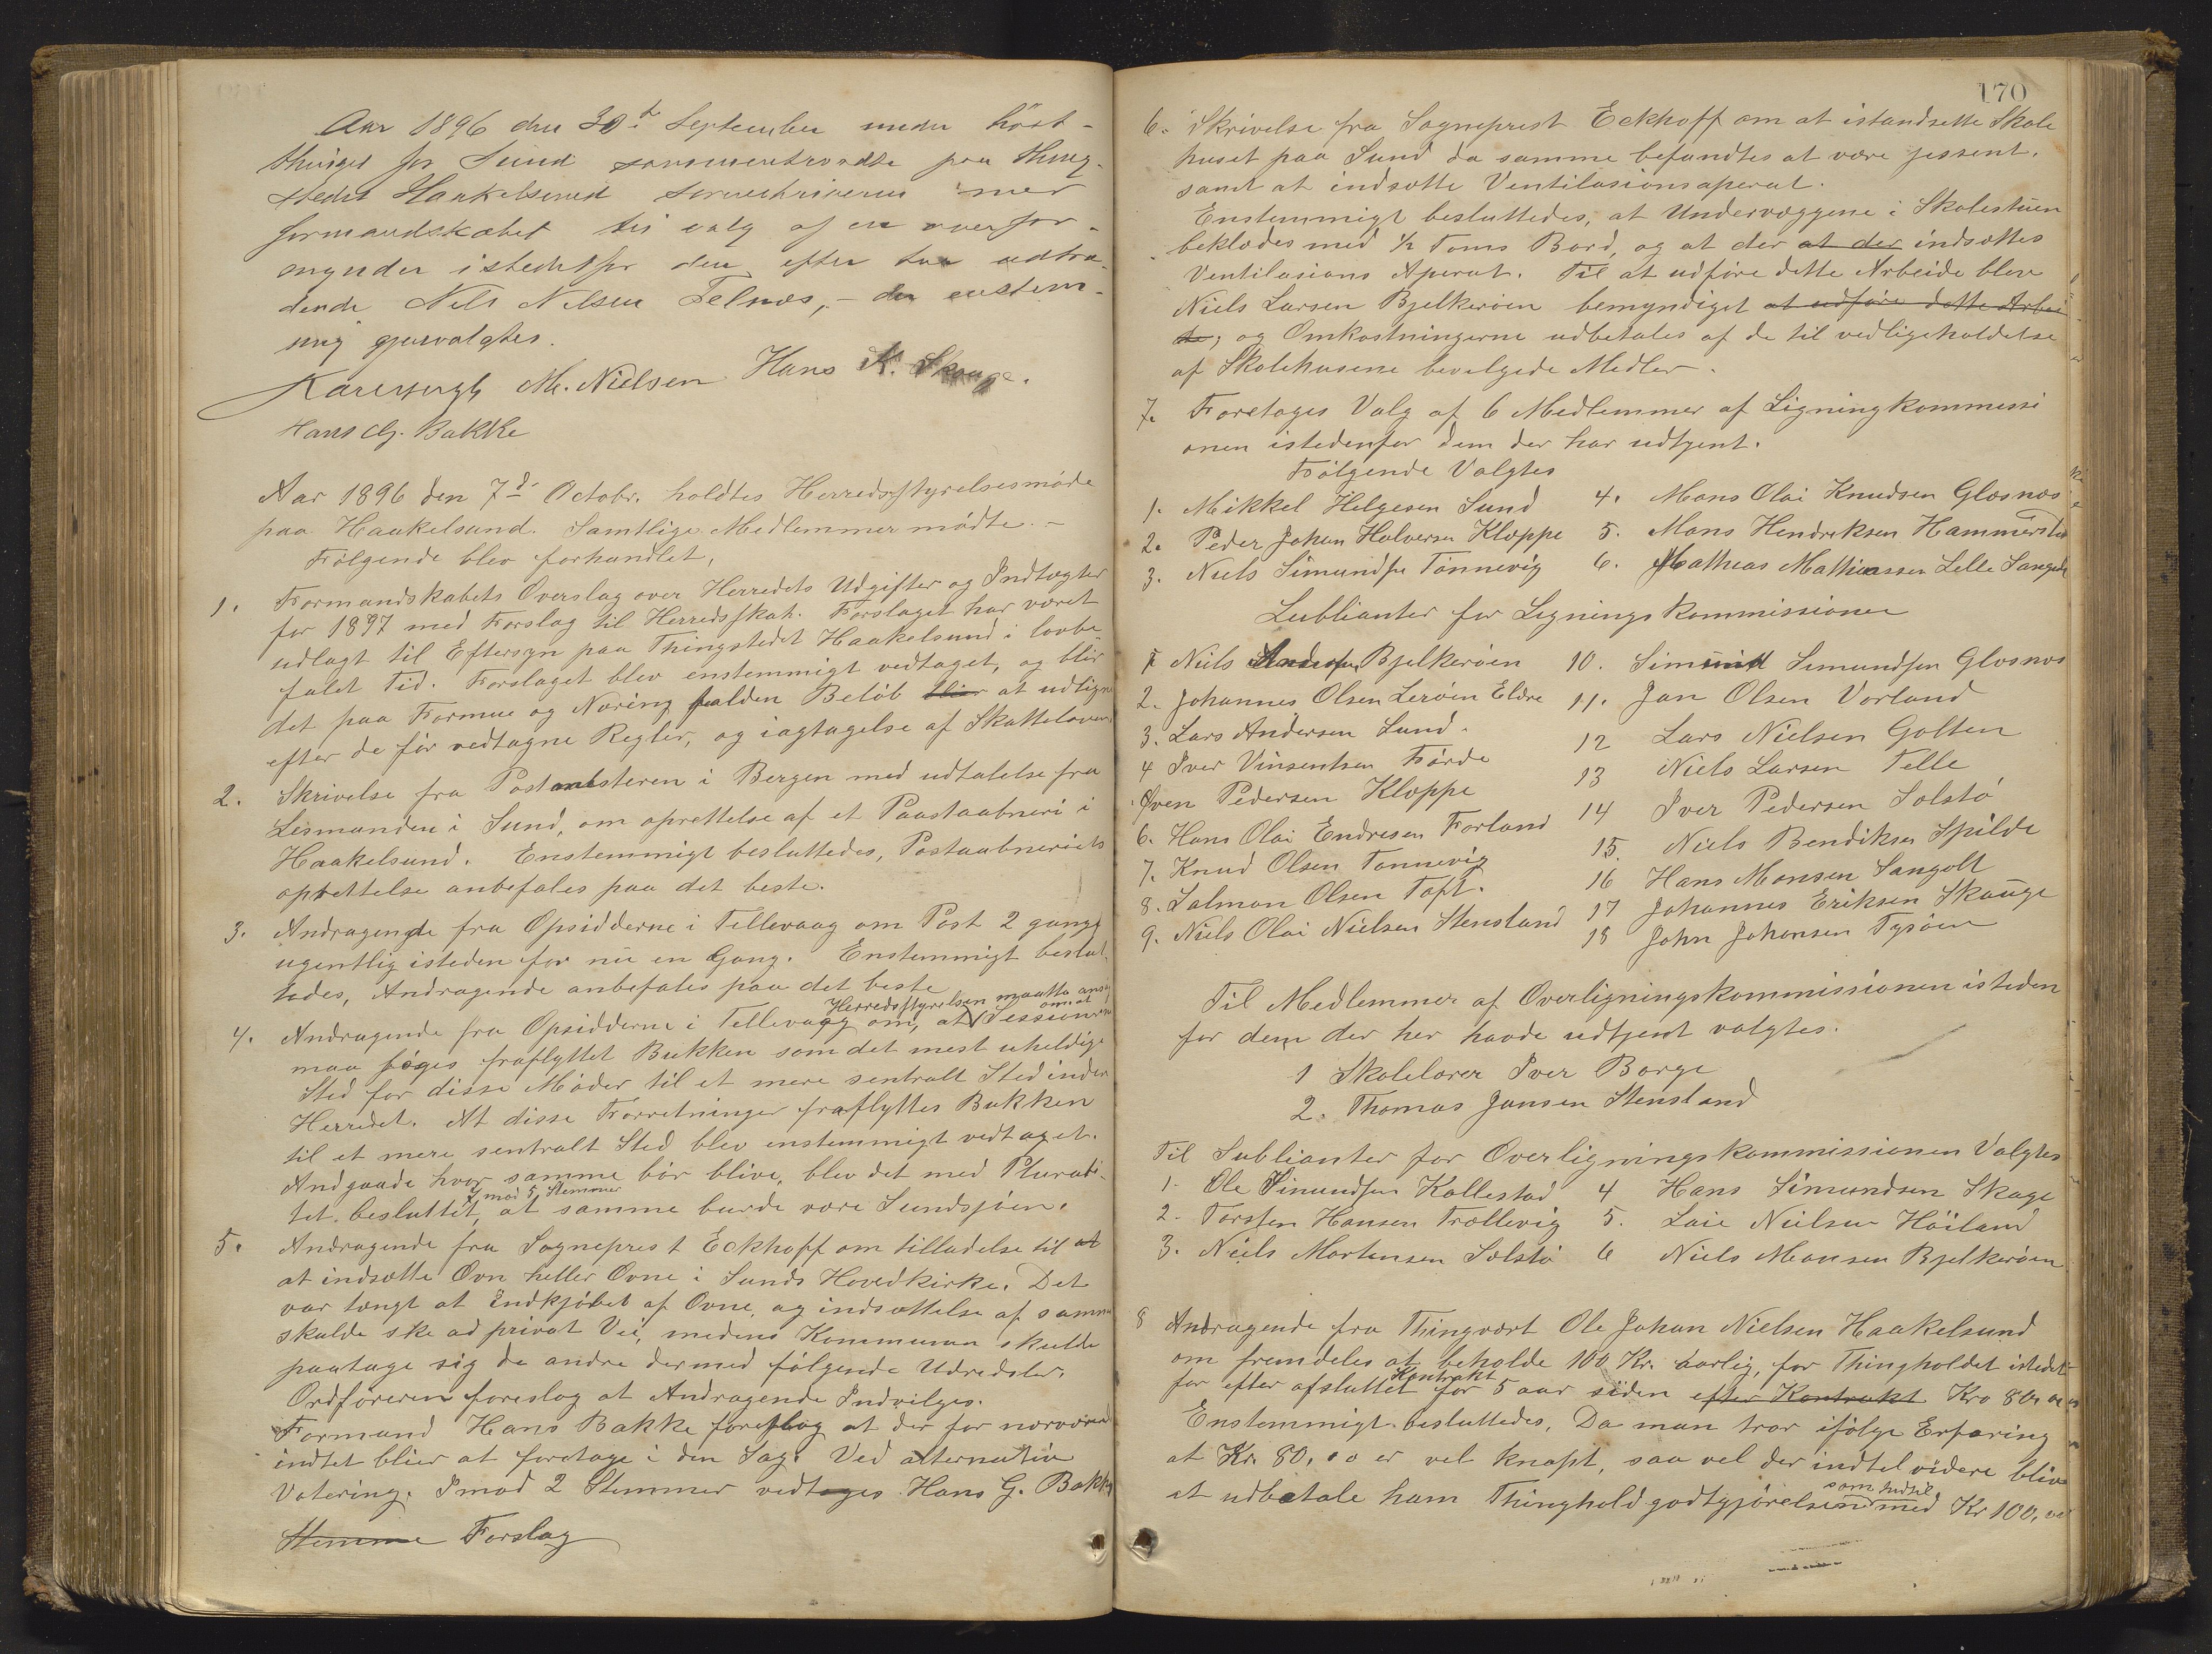 Aar 1896 den 30te September under höst-
thinget for Sund sammentraadte paa Thing-
stedet Haakelsund sorenskriveren med
formandskabet til valg af en overfor-
mynder istedetfor den efter tur udtræ-
dende Nils Nilsen Telnæs, - der enstem-
mig gjenvalgtes.
M. Nielsen Hans K. Skauge.
Hans G. Bakke
Aar 1896 den 7d Octobr. holdtes Herredsstyrelsesmöde
paa Haakelsund. Samtlige Medlemmer mödte. -
Fölgende blev forhandlet,
1. Formandskabets Overslag over Herredets Udgifter og Indtægter
for 1897 med Forslag til Herredsskat. Forslaget har været
udlagt til Eftersyn paa Thingstedet Haakelsund i lovbe-
falet Tid. Forslaget blev enstemmigt vedtaget, og blir
det paa Formue og Næring falden Belöb blir at udligne
efter de för vedtagne Regler, og iagtagelse af Skatteloven
2. Skrivelse fra Postmesteren i Bergen med udtalelse fra
Lesmanden i Sund, om oprettelse af et Paastaabneri i
Haakelsund. Enstemmigt besluttedes, Postaabneriets
oprettelse anbefales paa det beste.
3. Andragende fra Opsidderne i Tellevaag om Post 2 gange
ugentlig isteden for nu en Gang. Enstemmigt beslut-
tedes, Andragende anbefales paa det beste
Herredsstyrelsen maatte ansöge om at
4. Andragende fra Opsidderne i Tellevaag om, at Sessionerne
maa söges fraflyttet Bukken som det mest uheldige
Sted for disse Möder til et mere sentralt Sted inden
Herredet. At disse Forretninger fraflyttes Bukken
til et mere sentralt Sted blev enstemmigt vedtaget.
Andgaade hvor samme bör blive, blev det med Plurali-
mod 5 Stemmer
tet besluttet, at samme burde være Sundsjöen.
5. Andragende fra Sogneprest Eckhoff om tilladelse til at
at indsætte Ovn heller Ovne i Sunds Hovedkirke. Det
var tængt at Indkjöbet af Ovne, og indsættelse af samme
skulde ske ad privat Vei, medens Kommunen skulde
paatage sig de andre dermed fölgende Udredsler.
Ordföreren foreslog at Andragende Indvilges.
Formand Hans Bakke foreslog at der for nærværende
indtet blier at foretage i den Sag. Ved alternativ
Votering. Imod 2 Stemmer vedtoges Hans G. Bakkes
Stemme Forslag
170
6. Skrivelse fra Sogneprest Eckhoff om at istandsette Skole
huset paa Sund da samme befandtes at være jissent.
samt at indsætte Ventilasionsaperat.
Enstemmigt besluttedes, at Undervæggene i Skolestuen
beklædes med 1/2 Toms Bord, og at der at der indsættes
Ventilasions Aperat. Til at udföre dette Arbeide blev
Niels Larsen Bjelkeröen bemyndiget at udföre dette Arbei
de, og Omkostningerne udbetales af de til vedligeholdelse
af Skolehusene bevilgede Midler.
7. Foretoges Valg af 6 Medlemmer af Ligningkommissi
onen istedenfor dem der har udtjent.
Fölgende Valgtes
1. Mikkel Helgesen Sund 4. Mons Olai Knudsen Glæsnæs
2. Peder Johan Halversen Kleppe 5. Mons Hendriksen Hammersland
3. Niels Simundsen Tönnevig 6. Mathias Mathiassen Lelle Sangolt
Sublianter for Lignings Kommissionen
1 Niels Andersen Bjelkeröen 10. Simund Simundsen Glæsnæs
2. Johannes Olsen Leröen Eldre 11. Jan Olsen Vorland
3. Lars Andersen Sund. 12 Lars Nielsen Golten
4 Iver Vinsentsen Förde 13 Niels Larsen Telle
Sven Pedersen Kleppe 14 Iver Pedersen Solstö
6. Hans Olai Endresen Forland 15. Niels Bendiksen Spilde
7. Knud Olsen Tönnevig 16 Hans Monsen Sangolt
8. Salmon Olsen Toft. 17 Johannes Eriksen Skauge
9. Niels Olai Nielsen Stensland 18 John Johansen Tysöen
Til Medlemmer af Overligningskommissionen isteden
for dem der her havde udtjent valgtes.
1 Skolelærer Iver Borge
2. Thomas Jansen Stensland
Til Sublianter for Overligningskommissionen Valgtes
1. Ole Simundsen Kallestad 4 Hans Simundsen Skage
2. Torsten Hansen Trællevig 5. Laie Nielsen Höiland
3. Niels Mortensen Solstö 6 Niels Monsen Bjelkeröen
8 Andragende fra Thingvært Ole Johan Nielsen Haakelsund
om fremdeles at beholde 100 Kr. aarlig, for Thingholdet istedet-
Kontrakt
for efter afsluttet for 5 aar siden efter Kontrakt Kro 80,00
Enstemmigt besluttedes, Da man tror ifölge Erfaring
at Kr. 80,00 er vel knapt, saa vel der indtil videre blive
som hidtil
at udbetale ham Thinghold godtgjörelsen med Kr 100,00